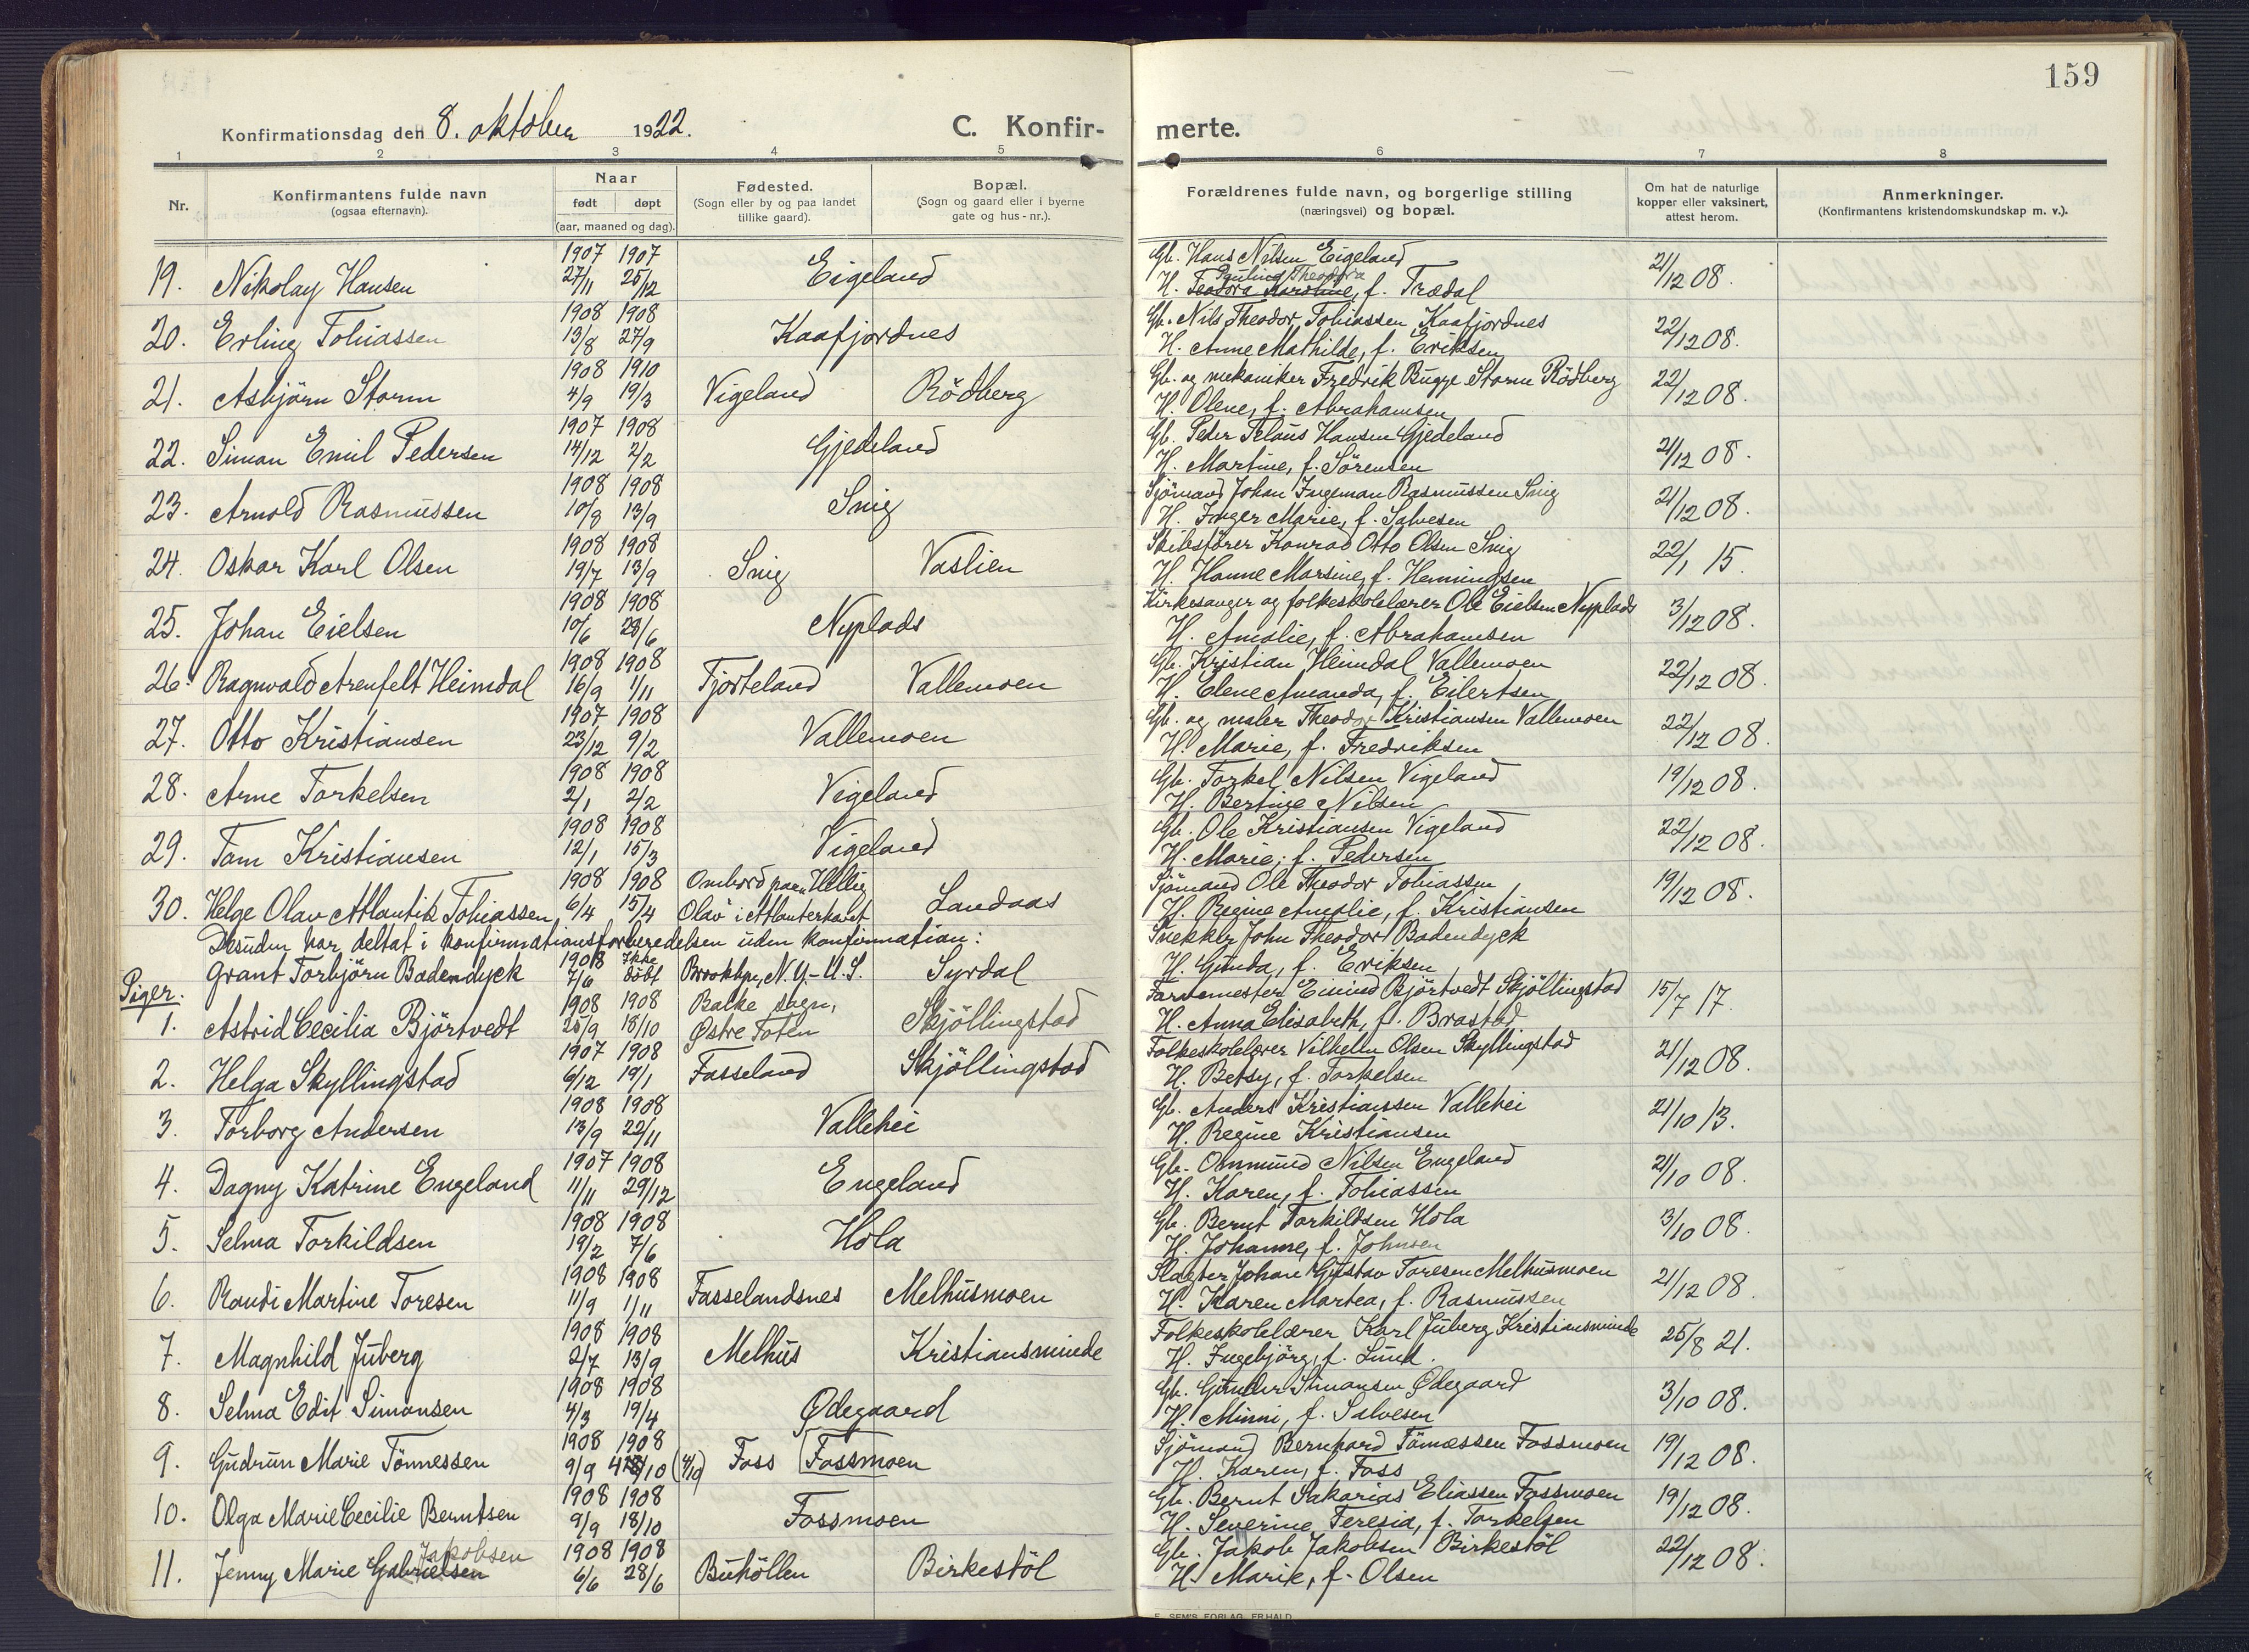 159
Konfirmationsdag den 8. oktober 1922.
C. Konfirmerte.
1 2 3 4 5 6 7 8
Nr.
Konfirmantens fulde navn
(ogsaa efternavn).
Naar
født døpt
(aar, maaned og dag).
Fødested.
(Sogn eller by og paa landet
tillike gaard).
Bopæl.
(Sogn og gaard eller i byerne
gate og hus-nr.).
Forældrenes fulde navn, og borgerlige stilling
(næringsvei) og bopæl.
Om hat de naturlige
kopper eller vaksinert,
attest herom.
Anmerkninger.
(Konfirmantens kristendomskundskap m. v.).
19. Nikolay Hansen 1907 27/11 1907 25/12 Eigeland Gb. Hans Nilsen Eigeland 21/12 08.
Pauline Theodora
H. Teodora Karoline, f. Trædal
20. Erling Tobiassen 1908 13/8 1908 27/9 Kaafjordnes Gb. Nils Theodor Tobiassen Kaafjordnes 22/12 08.
H. Anne Mathilde, f. Eriksen
21. Asbjörn Storm 1908 4/9 1910 19/3 Vigeland Rödberg Gb. og mekaniker Fredrik Bugge Storm Rödberg 22/12 08.
H. Olene, f. Abrahamsen
22. Simon Emil Pedersen 1907 14/12 1908 2/2 Gjedeland Gb. Peder Hansen Gjedeland 21/12 08.
H. Martine, f. Sörensen
23. Arnold Rasmussen 1908 10/8 1908 13/9 Snig Sjömand Johan Ingeman Rasmussen Snig 21/12 08.
H. Inger Marie, f. Salvesen
24. Oskar Karl Olsen 1908 19/7 1908 13/9 Snig Vaslien Skibsförer Konrad Otto Olsen Snig 22/1 15.
H. Hanne Marsine, f. Henningsen
25. Johan Eielsen 1908 10/6 1908 28/6 Nyplads Kirkesanger og folkeskolelærer Ole Eielsen Nyplads 3/12 08.
H. Amalie, f. Abrahamsen
26. Ragnvald Arenfelt Heimdal 1908 16/9 1908 1/11 Fjorteland Vallemoen Gb. Kristian Heimdal Vallemoen 22/12 08.
H. Elene Amanda, f. Eilertsen
27. Otto Kristiansen 1907 23/12 1908 9/2 Vallemoen Gb. og maler Theodor Kristiansen Vallemoen 22/12 08.
H. Marie, f. Fredriksen
28. Arne Torkelsen 1908 2/1 1908 2/2 Vigeland Gb. Torkel Nilsen Vigeland 19/12 08.
H. Bertine Nilsen
29. Tom Kristiansen 1908 12/1 1908 15/3 Vigeland Gb. Ole Kristiansen Vigeland 22/12 08.
H. Marie, f. Pedersen
30. Helge Olav Atlantik Tobiassen 1908 6/4 1908 15/4 Ombord paa "Hellig Olav" i Atlanterhavet Landaas Sjömand Ole Theodor Tobiassen 19/12 08.
H. Regine Amalie, f. Kristiansen
Desuden har deltat i konfirmationsforberedelsen uden konfirmation:
Grant Torbjörn Badendyck 1908 7/6 Ikke döbt Brooklyn, N.Y. - U.S. Syrdal Snekker John Theodor Badendyck
H. Gunda, f. Eriksen
Piger:
1. Astrid Cecilia Björtvedt 1908 25/9 1908 18/10 Balke sogn, Østre Toten Skjöllingstad Farvemester Eivind Björtvedt Skjöllingstad 15/7 17.
H. Anna Elisabeth, f. Brastad
2. Helga Skyllingstad 1907 6/12 1908 19/1 Fasseland Skjöllingstad Folkeskolelærer Vilhelm Olsen Skyllingstad 21/12 08.
H. Betsy, f. Torkelsen
3. Torborg Andersen 1908 13/9 1908 22/11 Vallehei Gb. Anders Kristianssen Vallehei 21/10 13.
H. Regine Kristiansen
4. Dagny Katrine Engeland 1907 11/11 1908 29/12 Engeland Gb. Ommund Nilsen Engeland 21/10 08.
H. Karen, f. Tobiassen
5. Selma Torkildsen 1908 19/2 1908 7/6 Hola Gb. Bernt Torkildsen Hola 3/10 08.
H. Johanne, f. Johnsen
6. Randi Martine Toresen 1908 11/9 1908 1/11 Fasselandsnes Melhusmoen Slagter Johan Gustav Toresen Melhusmoen 21/12 08.
H. Karen Martea, f. Rasmussen
7. Magnhild Juberg 1908 2/7 1908 13/9 Melhus Kristiansminde Folkeskolelærer Karl Juberg, Kristiansminde 25/8 21.
H. Ingebjörg, f. Lund.
8. Selma Edit Simonsen 1908 4/3 1908 19/4 Ødegaard Gb. Gunder Simonsen Ødegaard 3/10 08.
H. Minni, f. Salvesen
9. Gudrun Marie Tönnessen 1908 9/9 1908 4/10 (4/10) Foss Fossmoen Sjömand Bernhard Tönnessen Fossmoen 19/12 08.
H. Karen, f. Foss
10. Olga Marie Cecilie Berntsen 1908 9/9 1908 18/10 Fossmoen Gb. Bernt Sakarias Eliassen Fossmoen 19/12 08.
H. Severine Teresia, f. Torkelsen
Jakobsen
11. Jenny Marie Gabrielsen 1908 6/6 1908 28/6 Buhöllen Birkestöl Gb. Jakob Jakobsen Birkestöl 22/12 08.
H. Marie, f. Olsen
E. SEM'S FORLAG, FRHALD